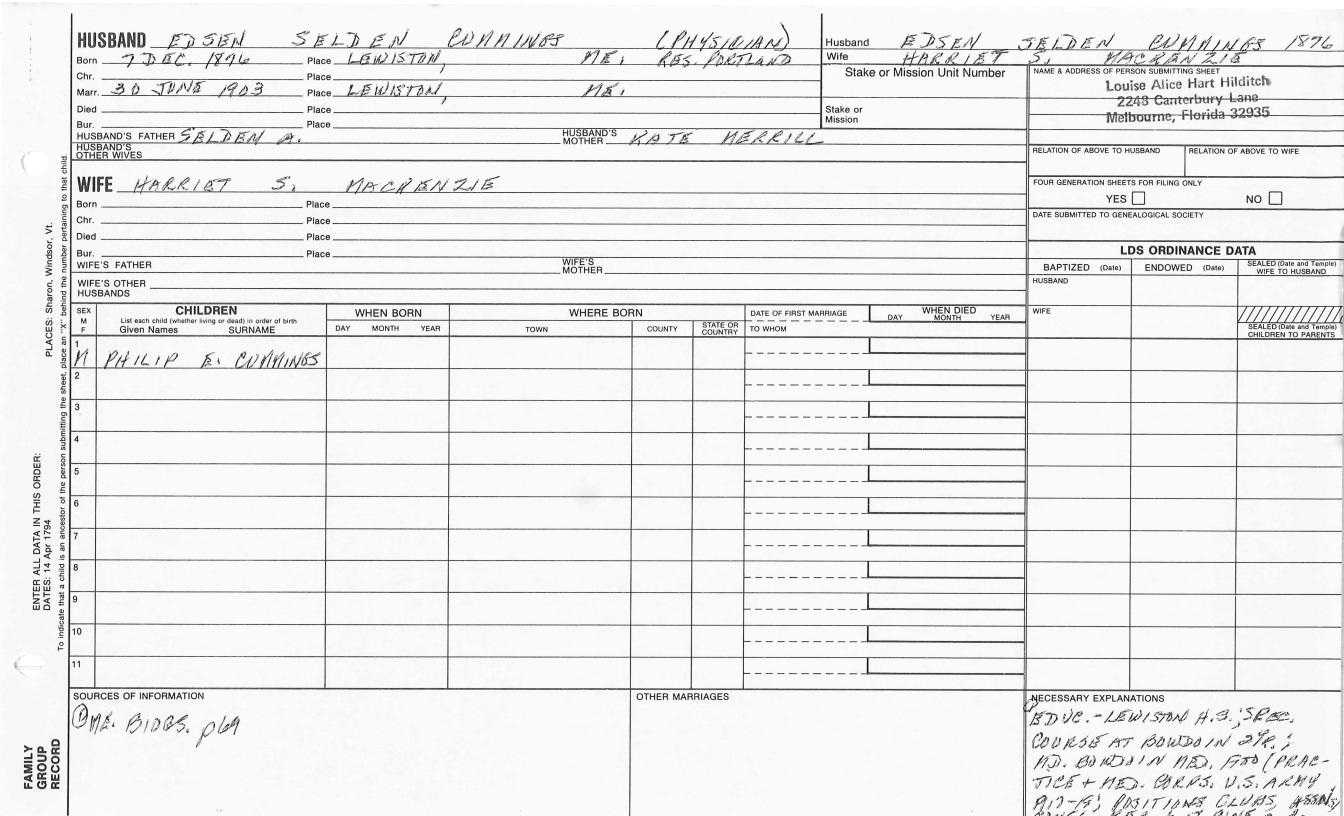 HUSBAND EDSEN SELDEN CUMMINGS (PHYSICIAN)
Born 7 DEC. 1876 Place LEWISTON, ME. RES. PORTLAND
Chr. Place
Marr. 30 JUNE 1903 Place LEWISTON, ME.
Died Place
Bur. Place
HUSBAND'S FATHER SELDEN A. HUSBAND'S MOTHER KATE MERRILL
HUSBAND'S OTHER WIVES
Husband EDSEN SELDEN CUMMINGS 1876
Wife HARRIET S. MACKENZIE
Stake or Mission Unit Number
Stake or
Mission
NAME & ADDRESS OF PERSON SUBMITTING SHEET
Louise Alice Hart Hilditch
2243 Canterbury Lane
Melbourne, Florida 32935
RELATION OF ABOVE TO HUSBAND RELATION OF ABOVE TO WIFE
FOUR GENERATION SHEETS FOR FILING ONLY
YES NO
DATE SUBMITTED TO GENEALOGICAL SOCIETY
WIFE HARRIET S. MACKENZIE
Born Place
Chr. Place
Died Place
Bur. Place
WIFE'S FATHER WIFE'S MOTHER
WIFE'S OTHER HUSBANDS
LDS ORDINANCE DATA
BAPTIZED (Date) ENDOWED (Date) SEALED (Date and Temple) WIFE TO HUSBAND
HUSBAND
WIFE
SEALED (Date and Temple) CHILDREN TO PARENTS
SEX M F
CHILDREN
List each child (whether living or dead) in order of birth
Given Names SURNAME
WHEN BORN
DAY MONTH YEAR
WHERE BORN
TOWN COUNTY STATE OR COUNTRY
DATE OF FIRST MARRIAGE
TO WHOM
WHEN DIED
DAY MONTH YEAR
1 M PHILIP E. CUMMINGS
2
3
4
5
6
7
8
9
10
11
SOURCES OF INFORMATION
① ME. BIOGS. p69
OTHER MARRIAGES
NECESSARY EXPLANATIONS
EDUC. - LEWISTON H.S.; SPEC.
COURSE AT BOWDOIN 2 YR.;
MD. BOWDOIN MED. (PRAC-
TICE + MED. CORPS. U.S. ARMY
POSITIONS CLUBS,
PLACES: Sharon, Windsor, Vt.
ENTER ALL DATA IN THIS ORDER:
DATES: 14 Apr 1794
To indicate that a child is an ancestor of the person submitting the sheet, place an "X" behind the number pertaining to that child.
FAMILY
GROUP
RECORD